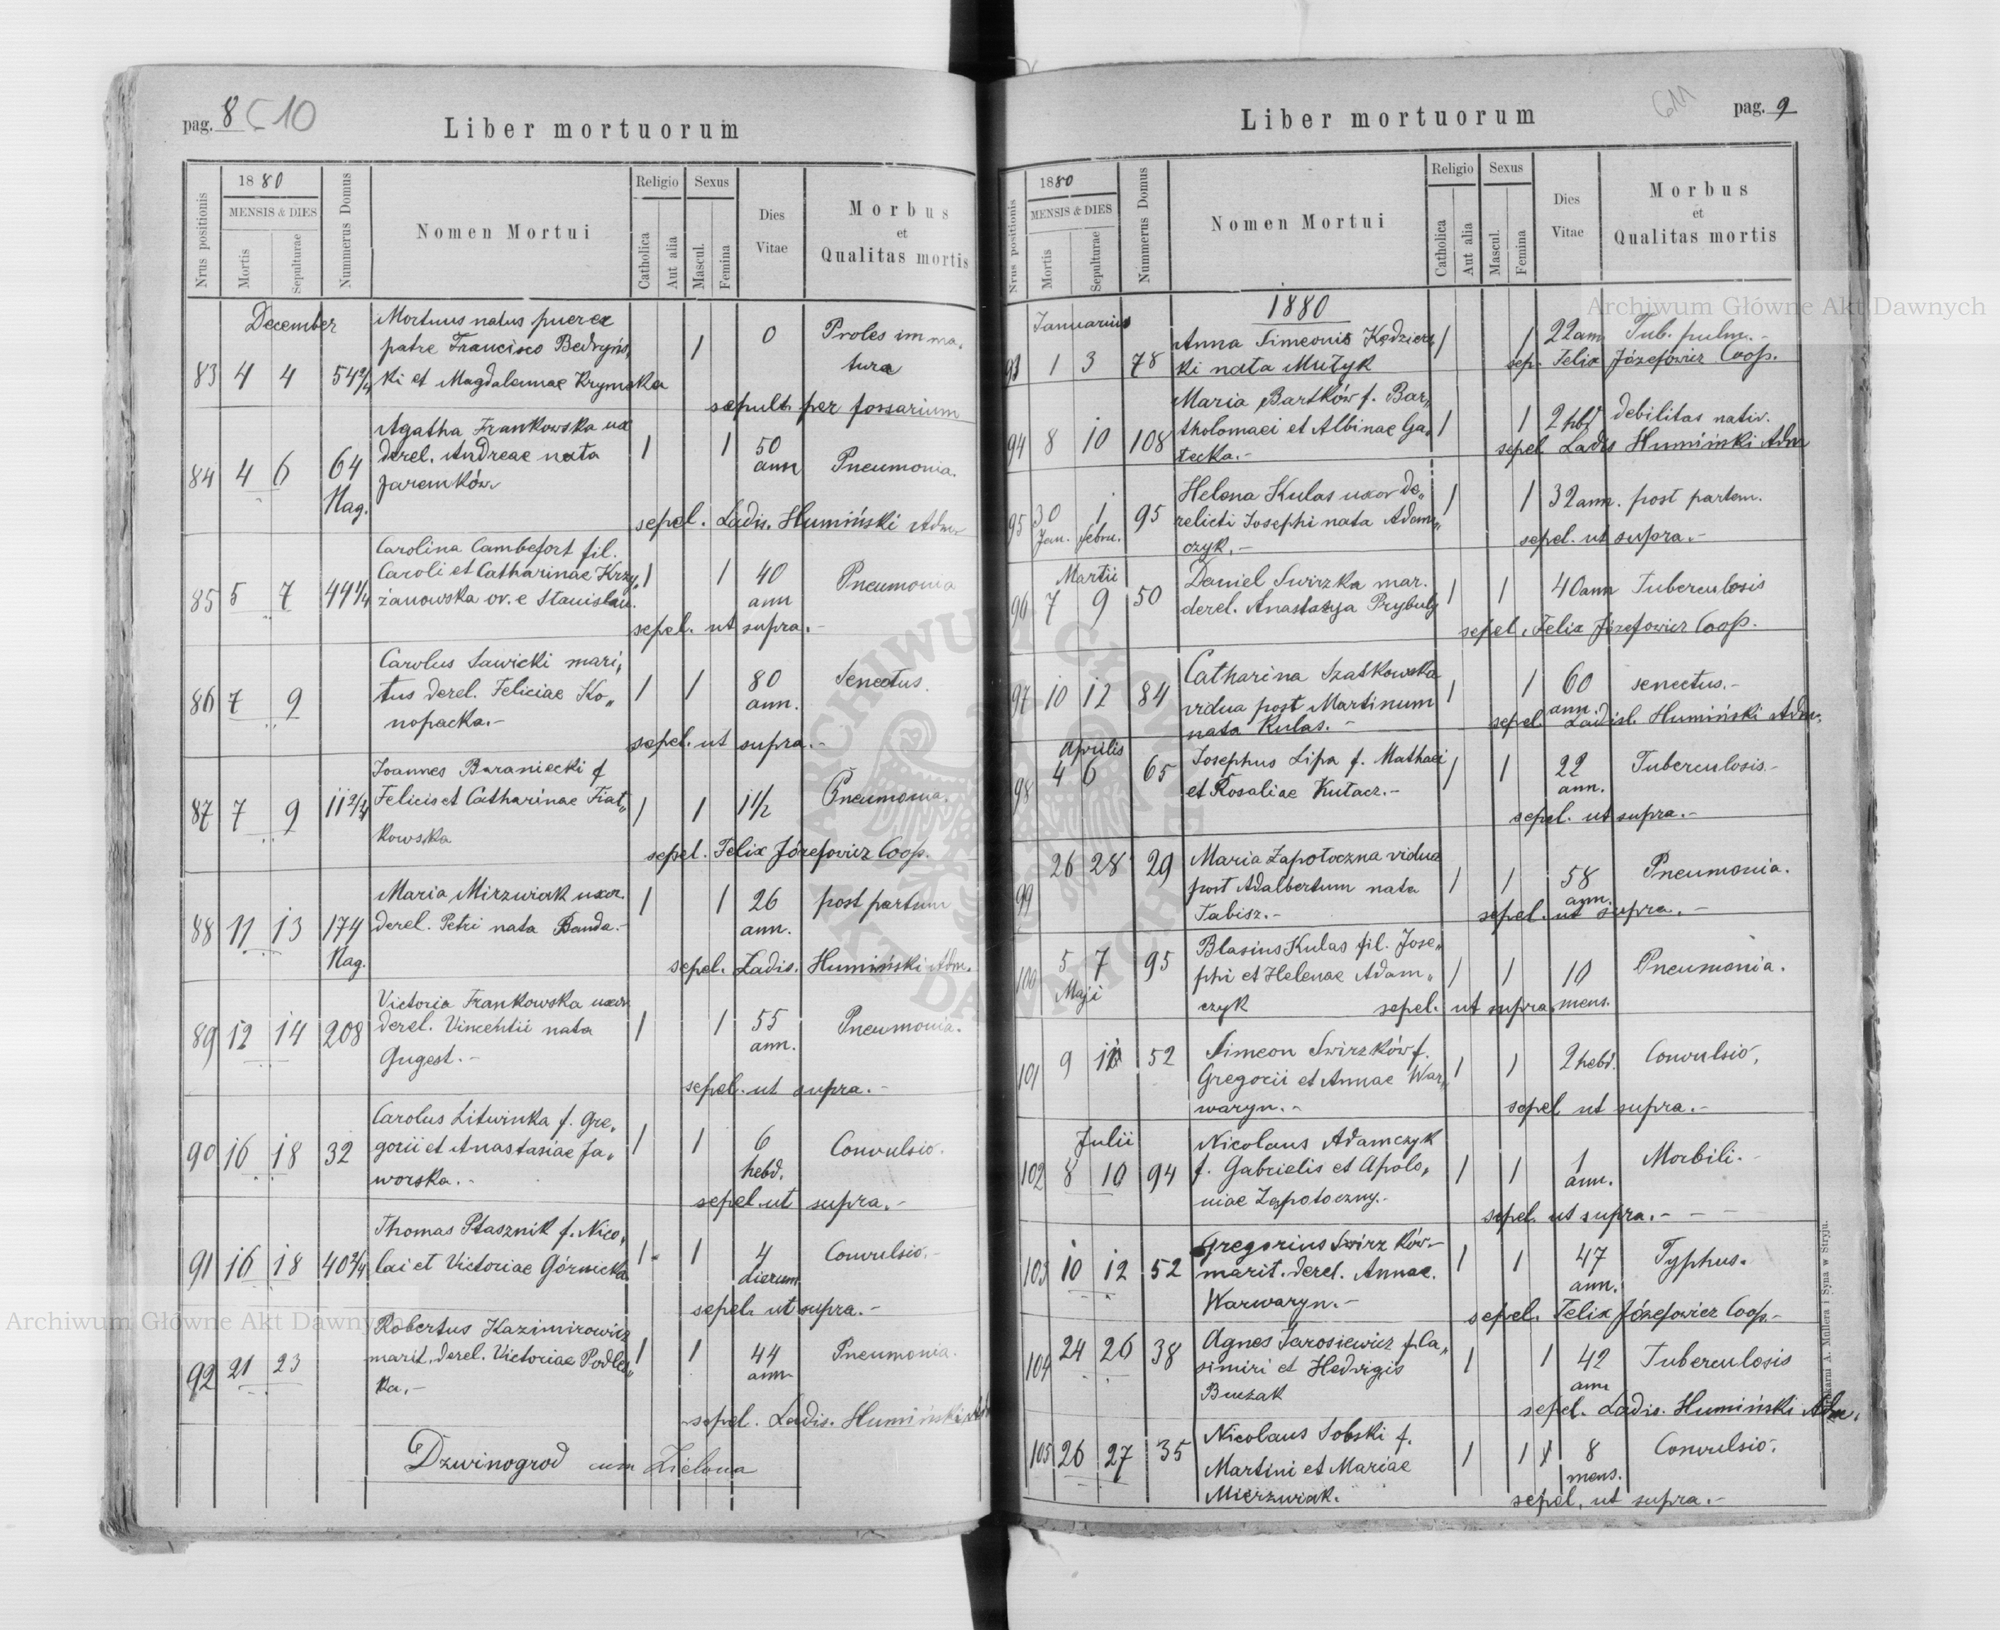 pag. 8 C10
Liber mortuorum
1880
MENSIS & DIES
Nrus positionis
Mortis
Sepulturae
Nummerus Domus
Nomen Mortui
Religio
Catholica
Aut alia
Sexus
Mascul.
Femina
Dies
Vitae
Morbus
et
Qualitas mortis
December
Mortuus natus puer ex
patre Francisco Bedryńs,
83 4 4 54 2/4 ki et Magdalennae Krymska 1 0 Proles imma,
tura
sepult. per fossarium
Agatha Frankowska ux
84 4 6 64 derel. Andreae nata 1 1 50 ann Pneumonia.
Nag. Jaremków.
sepel. Ladis. Humiński Adm.
Carolina Cambefort fil.
Caroli et Catharinae Krzy, 1 1 40 Pneumonia
85 5 7 44 1/4 żanowska ov. e Stanislau. ann
sepel. ut supra.-
Carolus Sawicki mari,
86 7 9 tus derel. Feliciae Ko,, 1 1 80 ann. Senectus.
nopacka.-
sepel. ut supra.-
Joannes Baraniecki f
87 7 9 11 2/4 Felicis et Catharinae Fiat,, 1 1 1 1/2 Pneumonia.
kowska
sepel. Felix Józefowicz Coop.
Maria Mirzwiak uxor. 1 1 26 post partum
88 11 13 174 derel. Petri nata Banda.- ann.
Nag.
sepel. Ladis. Humiński Adm.
Victoria Frankowska uxor
89 12 14 208 derel. Vincentii nata 1 1 55 ann. Pneumonia.
Gugest.-
sepel. ut supra.-
Carolus Litwinka f. Gre,
90 16 18 32 gorii et Anastasiae Ja,, 1 1 6 hebd. Convulsio.
worska.-
sepel. ut supra.-
Thomas Ptasznik f. Nico,
91 16 18 40 2/4 lai et Victoriae Górnicka 1 1 4 dierum Convulsio.-
sepel. ut supra.-
Robertus Kazimirowicz
92 21 23 marit. derel. Victoriae Podle,, 1 1 44 ann Pneumonia.
ka.-
sepel. Ladis. Humiński Adm
Dzwinogrod cum Zielona
pag. 9
Liber mortuorum
1880
MENSIS & DIES
Nrus positionis
Mortis
Sepulturae
Nummerus Domus
Nomen Mortui
Religio
Catholica
Aut alia
Sexus
Mascul.
Femina
Dies
Vitae
Morbus
et
Qualitas mortis
1880
Januarius
Anna Simeonis Kędziers 1 1 22 ann Tub. pulm.-
93 1 3 78 ki nata Mużyk sep. Felix Józefowicz Coop.
Maria Bartków f. Bar,,
94 8 10 108 tholomaei et Albinae Ga, 1 1 2 hbd debilitas nativ.
tecka.- sepel Ladis Humiński Adm
Helena Kulas uxor de,, 1 1 32 ann. post partem.
95 30 1 95 relicti Josephi nata Adam,,
Jan. febru. czyk.- sepel. ut supra.-
Martii
96 7 9 50 Daniel Swirzka mar. 1 1 40 ann Tuberculosis
derel. Anastazya Prybuly
sepel. Felix Józefowicz Coop.
Catharina Szatkowska
97 10 12 84 vidua post Martinum 1 1 60 ann. senectus.-
nata Kulas.- sepel. Ladisl. Humiński Adm.
Aprilis
98 4 6 65 Josephus Lipa f. Mathaei 1 1 22 ann. Tuberculosis.-
et Rosaliae Kutacz.-
sepel. ut supra.-
99 26 28 29 Maria Zapotoczna vidua
post Adalbertum nata 1 1 58 ann. Pneumonia.
Tabisz.- sepel. ut supra.-
100 5 7 95 Blasius Kulas fil. Jose,,
Maji phi et Helenae Adam,, 1 1 10 mens. Pneumonia.
czyk sepel. ut supra
101 9 11 52 Simeon Swirzków f.
Gregorii et Annae War,, 1 1 2 hebd. Convulsio.
waryn.- sepel ut supra.-
Julii
102 8 10 94 Nicolaus Adamczyk
f. Gabrielis et Apolo, 1 1 1 ann. Morbili.-
niae Zapotoczny.-
sepel. ut supra.- - -
Gregorius Swirzków.-
103 10 12 52 marit. derel. Annae. 1 1 47 ann. Typhus.
Warwaryn.-
sepel. Felix Józefowicz Coop.-
104 24 26 38 Agnes Jarosiewicz f. Ca,,
simiri et Hedvigis 1 1 42 ann Tuberculosis
Buczak
sepel. Ladis. Humiński Adm.
105 26 27 35 Nicolaus Sobski f. 1 1 8 mens. Convulsio.
Martini et Mariae
Mierzwiak. sepel. ut supra.-
Drukarni A. Müllera i Syna w Stryju.
Archiwum Główne Akt Dawnych
Archiwum Główne Akt Dawnych
ARCHIWUM GŁÓWNE AKT DAWNYCH